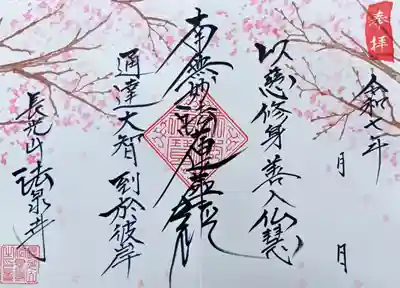 奉拝
令和七年　月　日
以慈修身善入仏慧
南無妙法蓮華経
通達大智到於彼岸
長光山 法泉寺